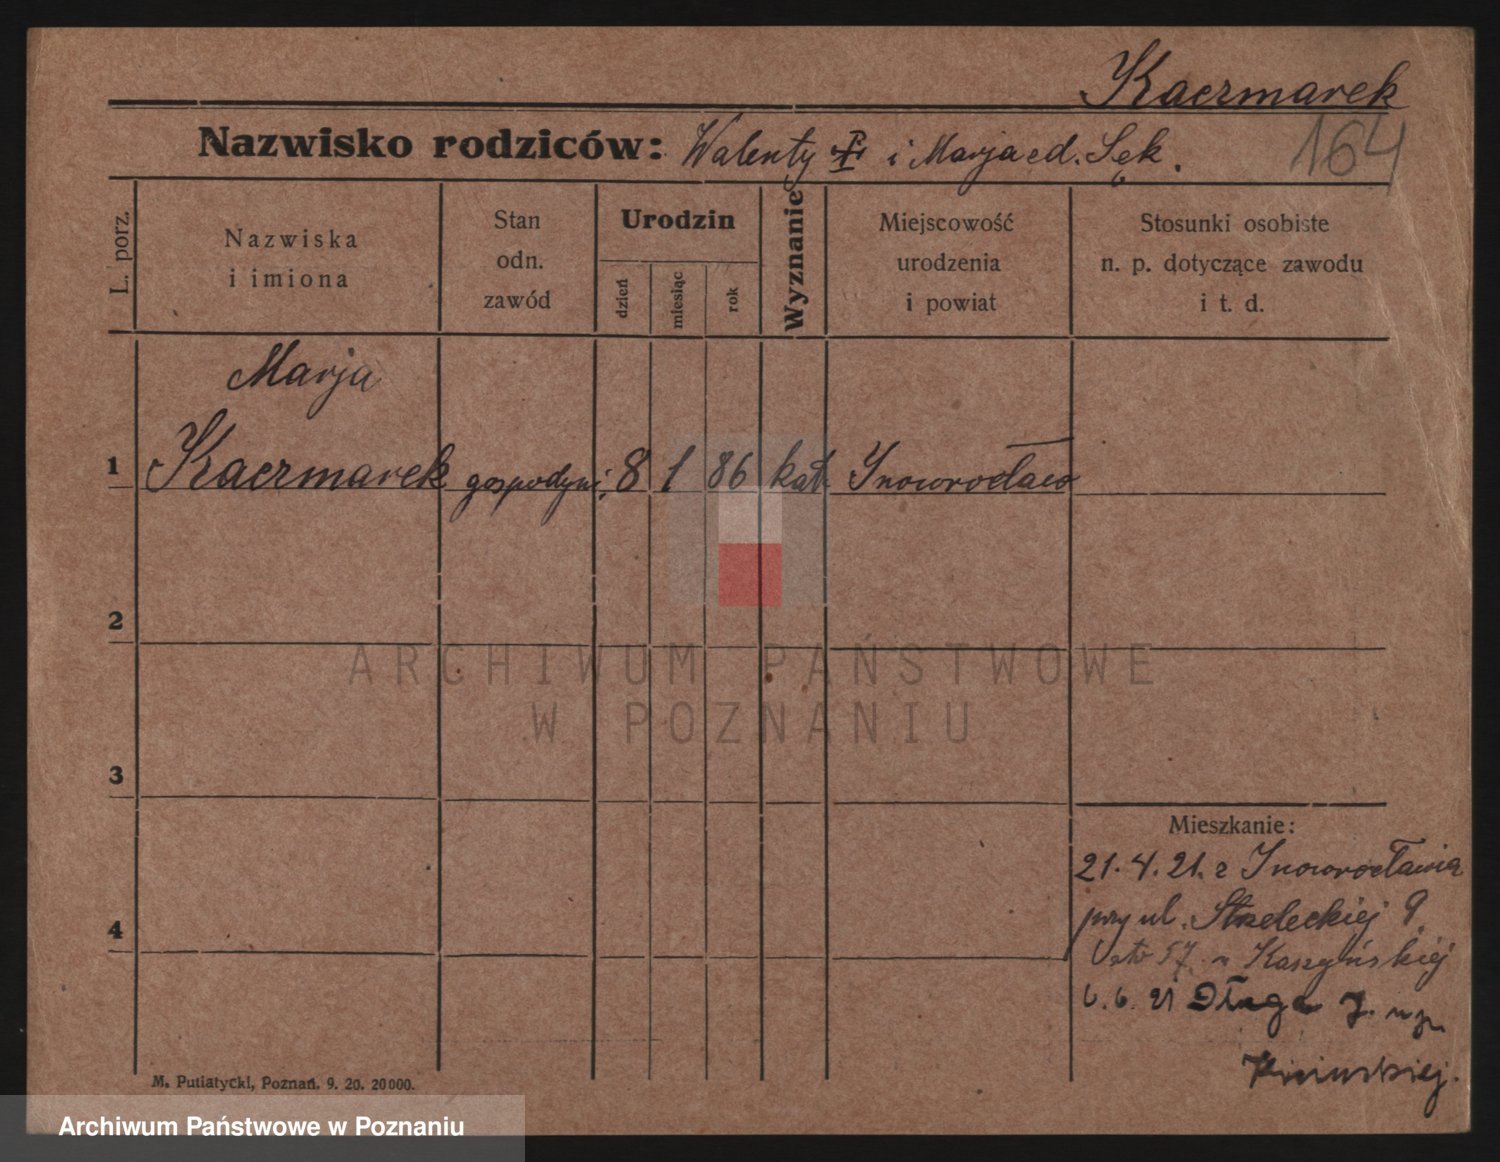 Kaczmarek
164
Nazwisko rodziców: Walenty i Marja cd. Sęk.
L. porz.
Nazwiska
i imiona
Stan
odn.
zawód
Urodzin
dzień
miesiąc
rok
Wyznanie
Miejscowość
urodzenia
i powiat
Stosunki osobiste
n. p. dotyczące zawodu
i t. d.
Marja
1 Kaczmarek gospodyni 8 1 86 kat Inowrocław
2
3
4
Mieszkanie:
21.4.21. z Inowrocławia
przy ul. Strzeleckiej 9
57
6.6.21 Długa 7.
M. Putiatycki, Poznań. 9. 20. 20000.
ARCHIWUM PAŃSTWOWE
W POZNANIU
Archiwum Państwowe w Poznaniu